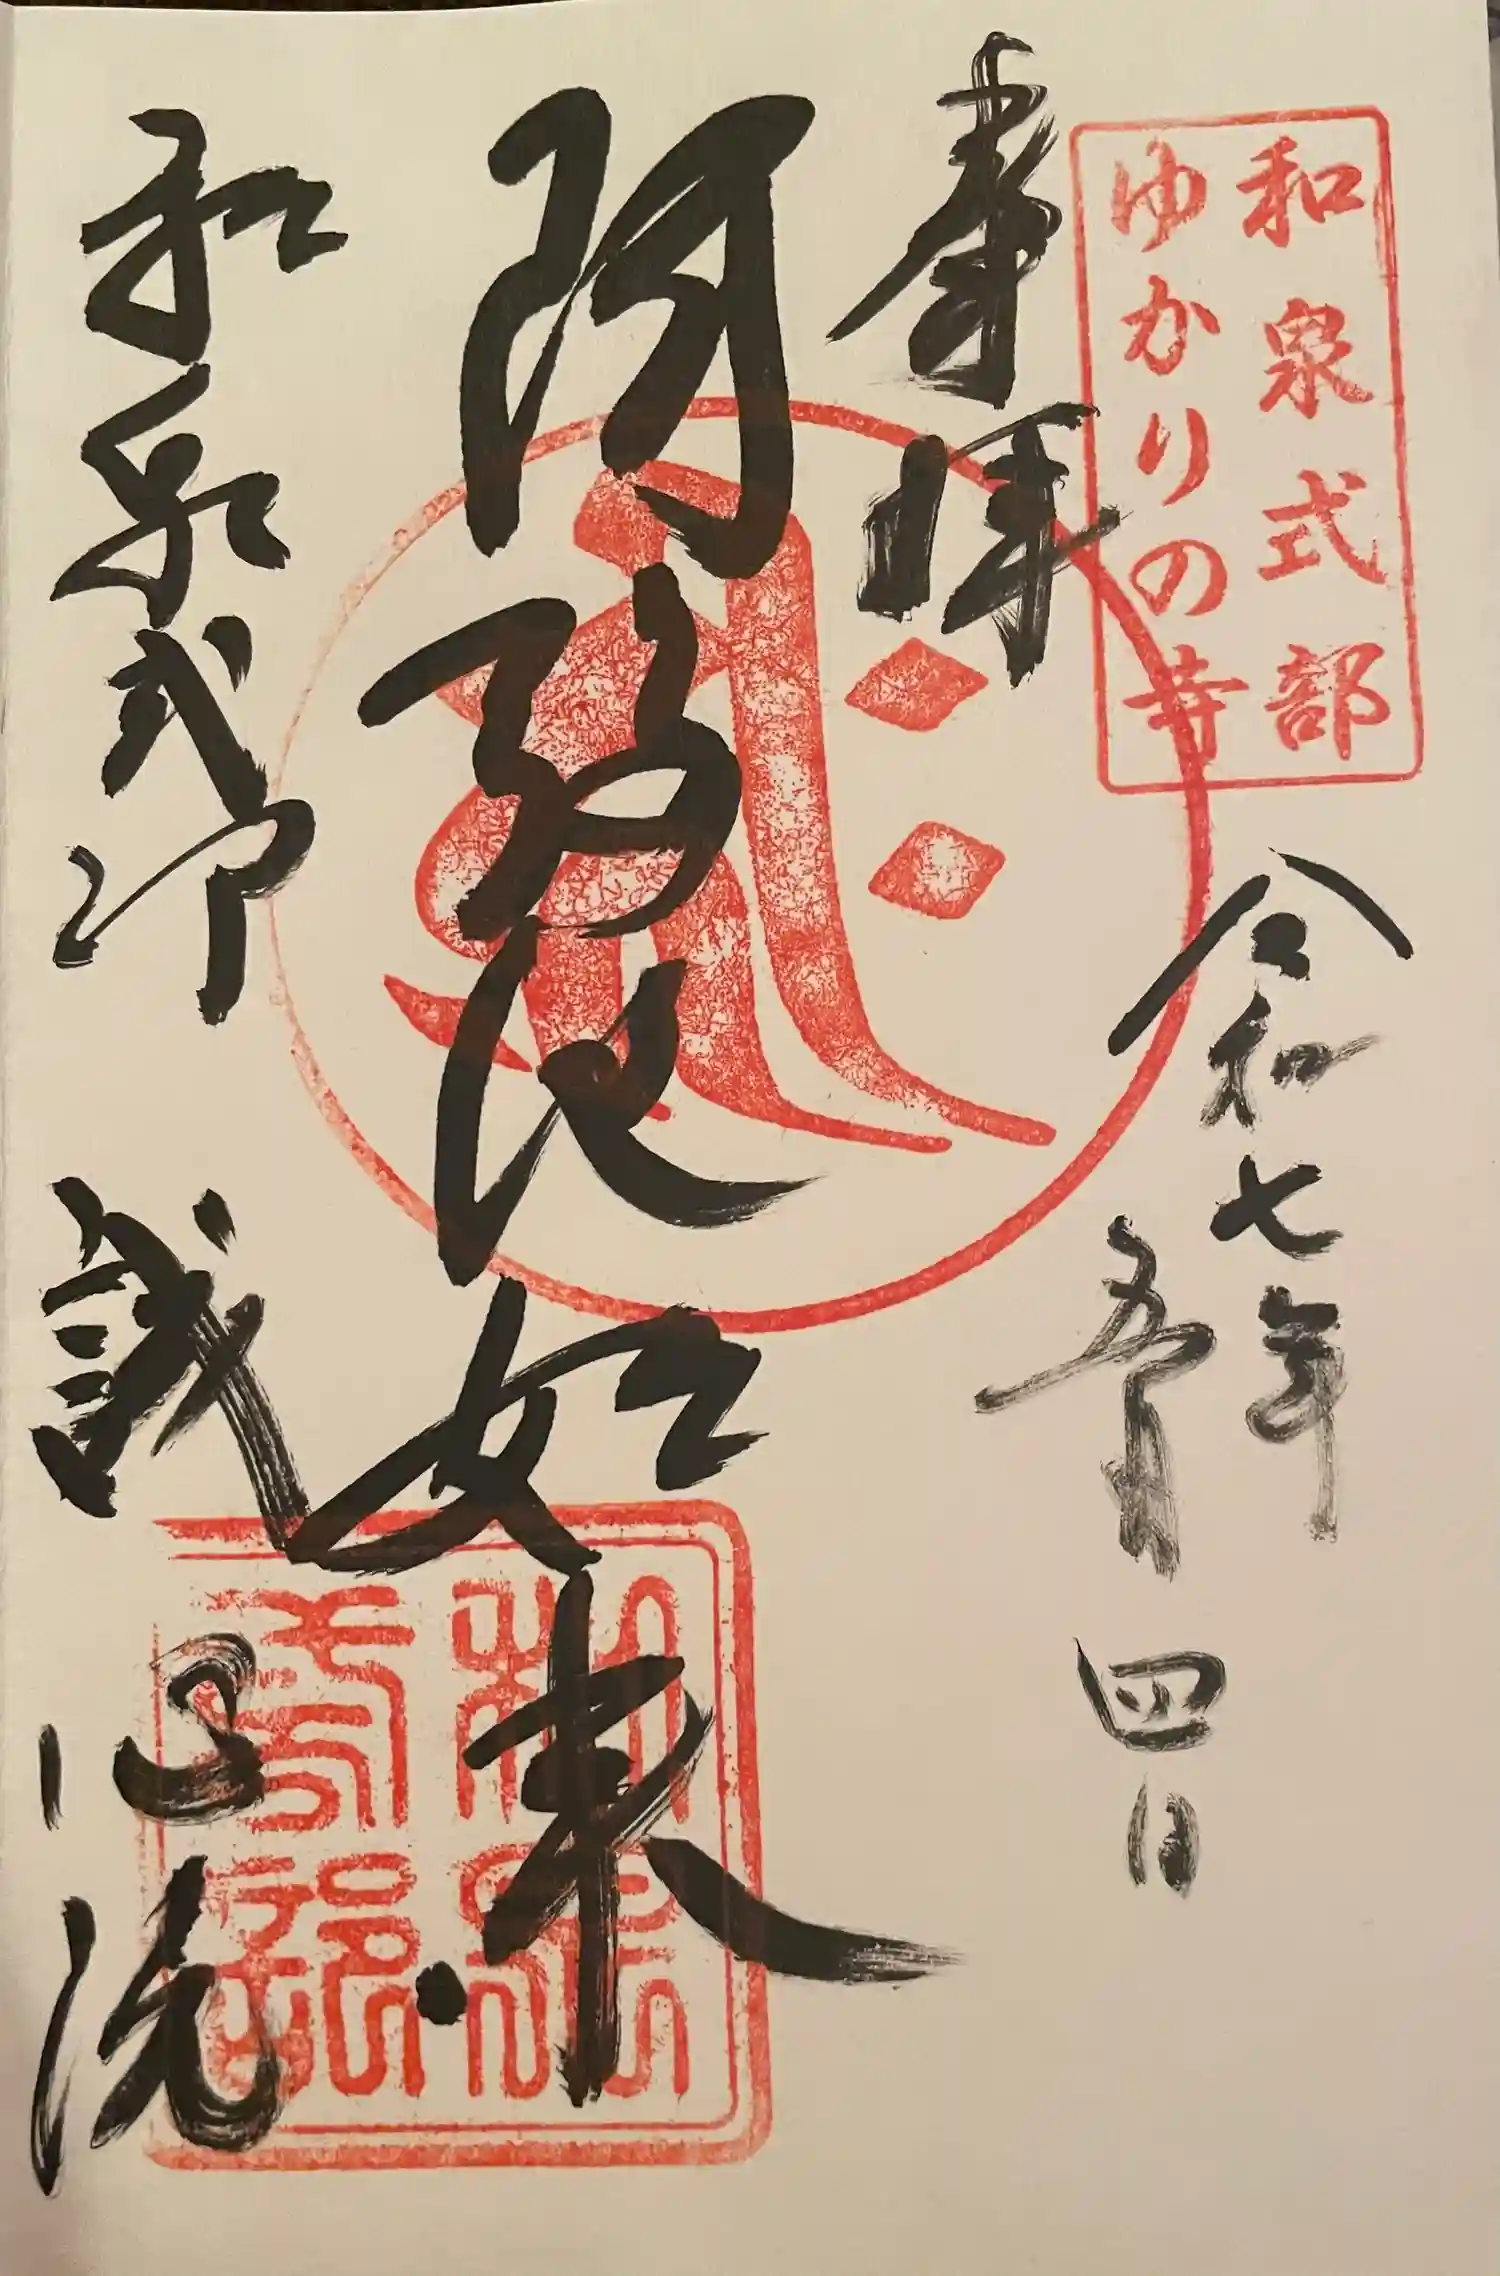 和泉式部
ゆかりの寺
奉拝
令和七年
五月四日
阿弥陀如来
和泉式部
誠心院